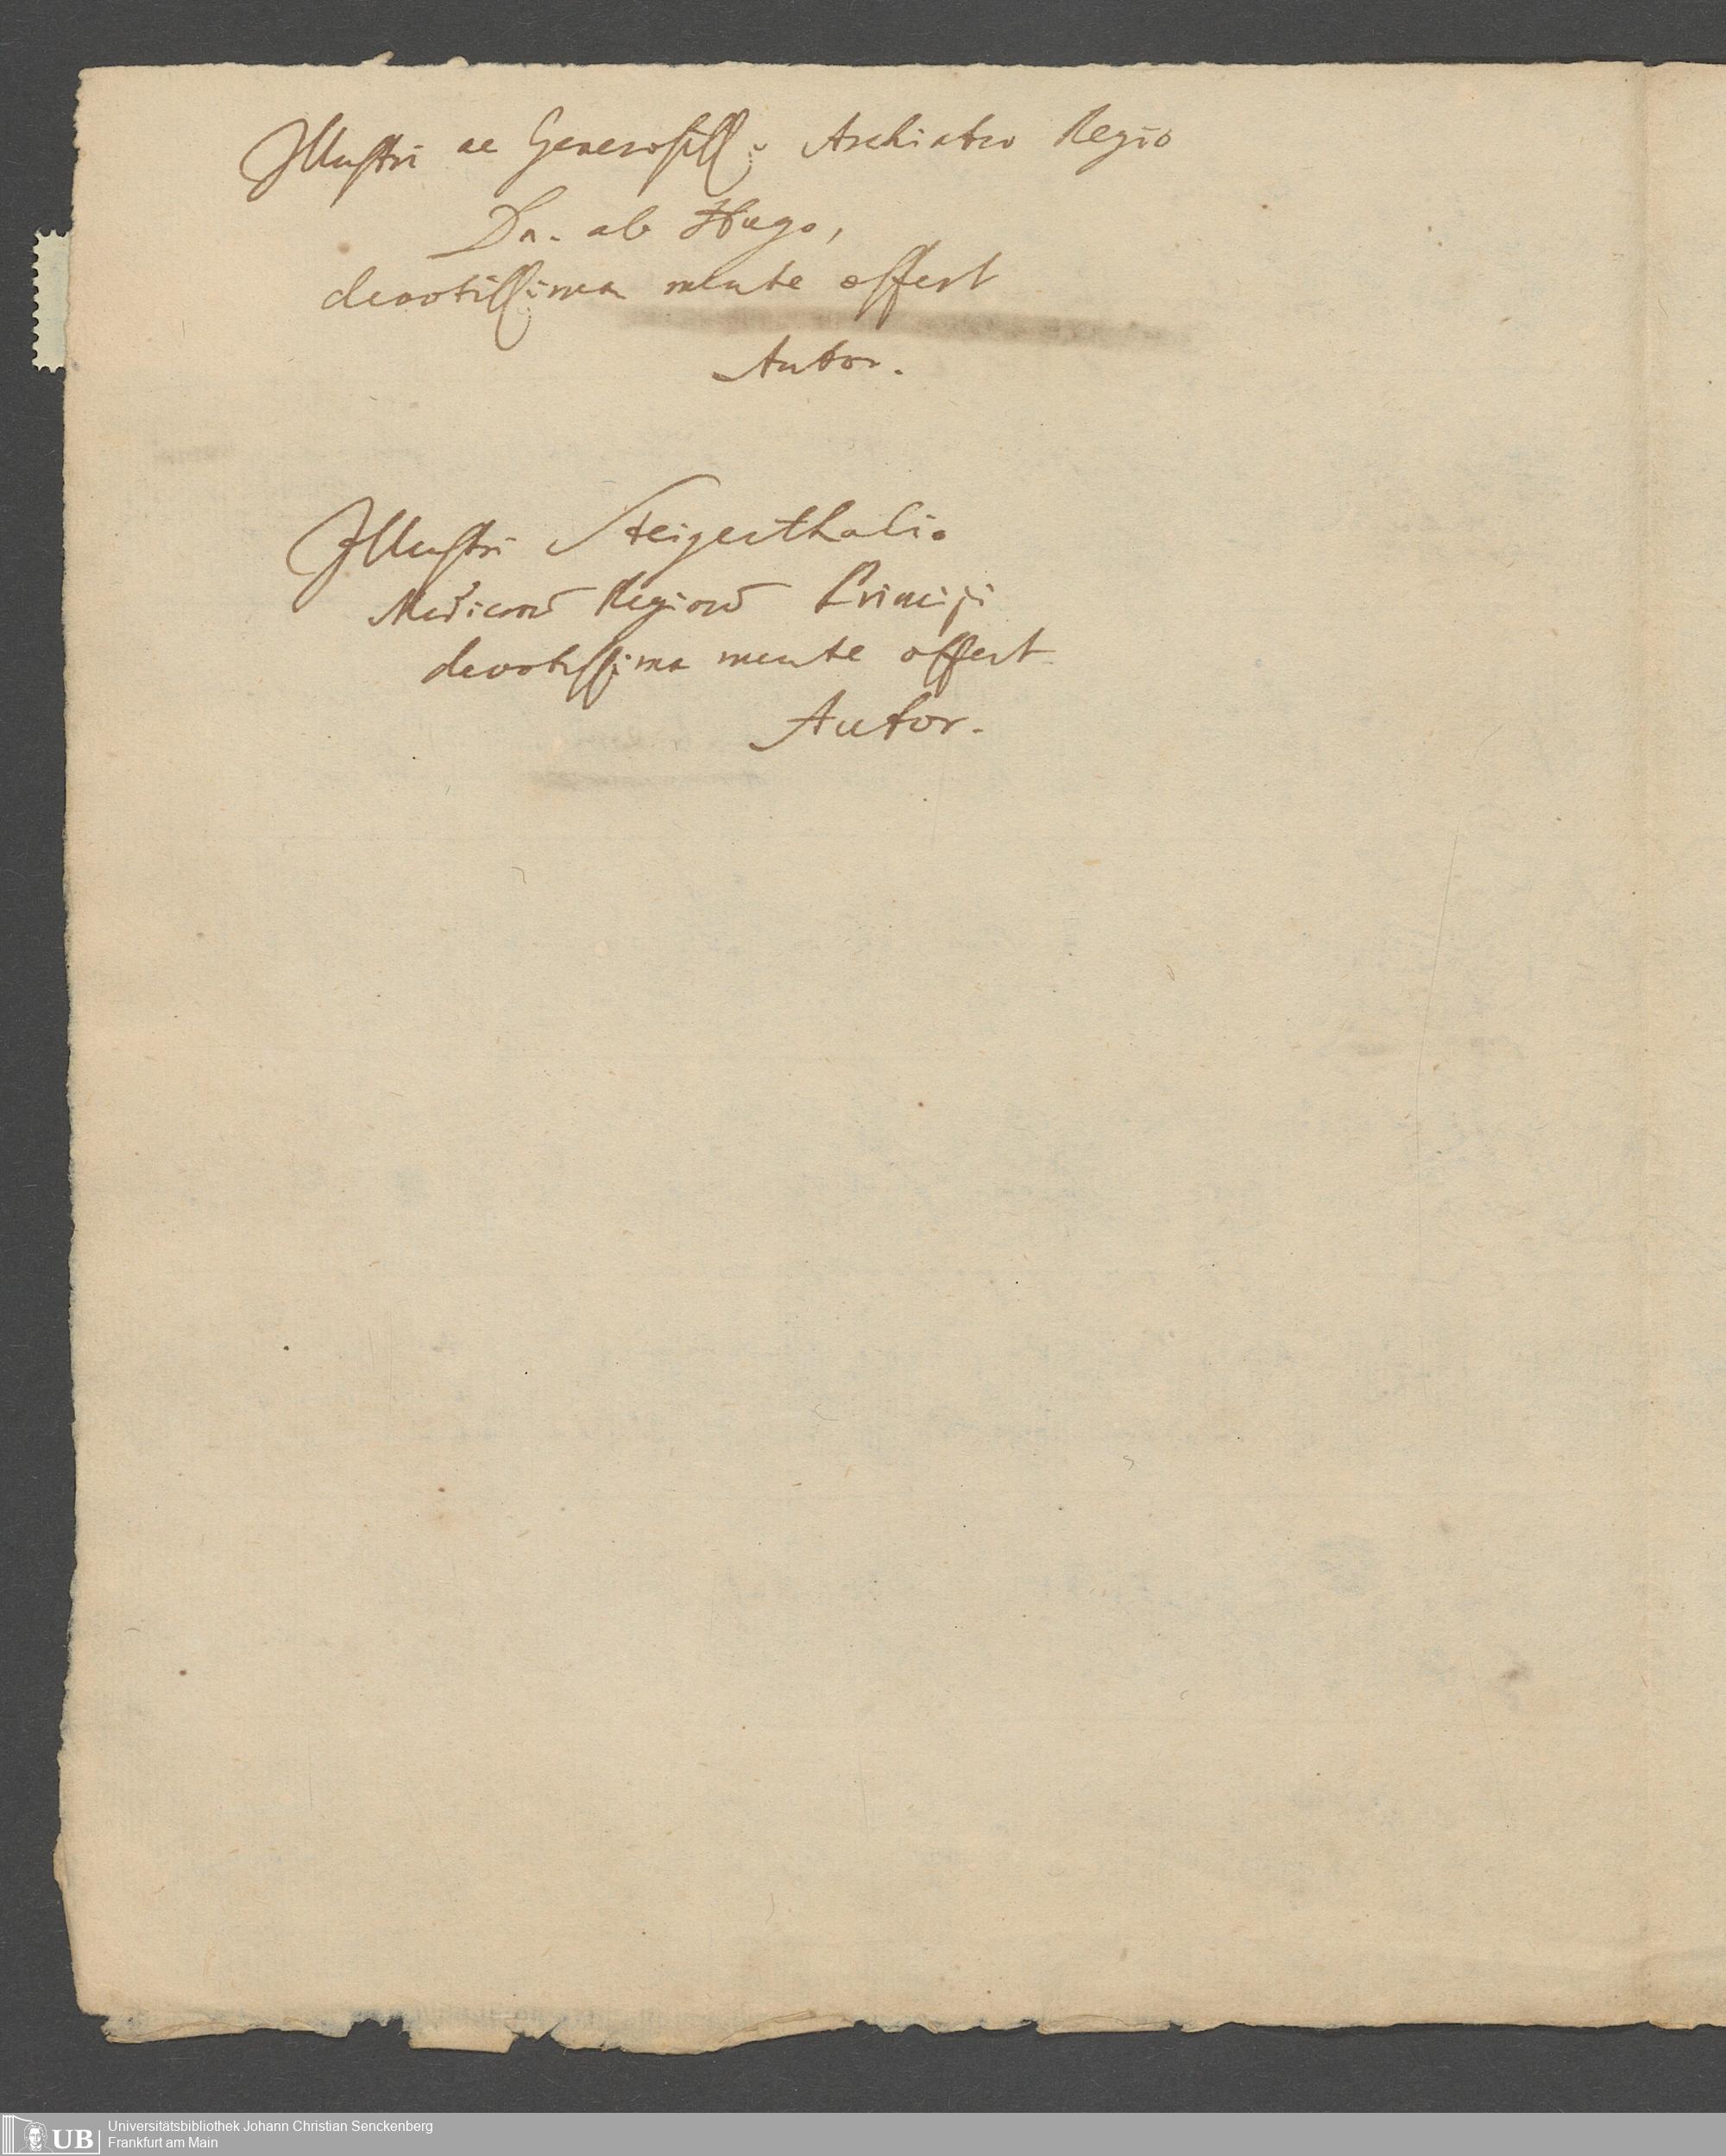 Illustri ac Generosiss: Archiatro Regio
Dn. ab Hugo,
devotissima mente offert
Autor.
Illustri Steigerthalio
Medicorū Regiorū Principi
devotissima mente offert
Autor.
UB Universitätsbibliothek Johann Christian Senckenberg
Frankfurt am Main